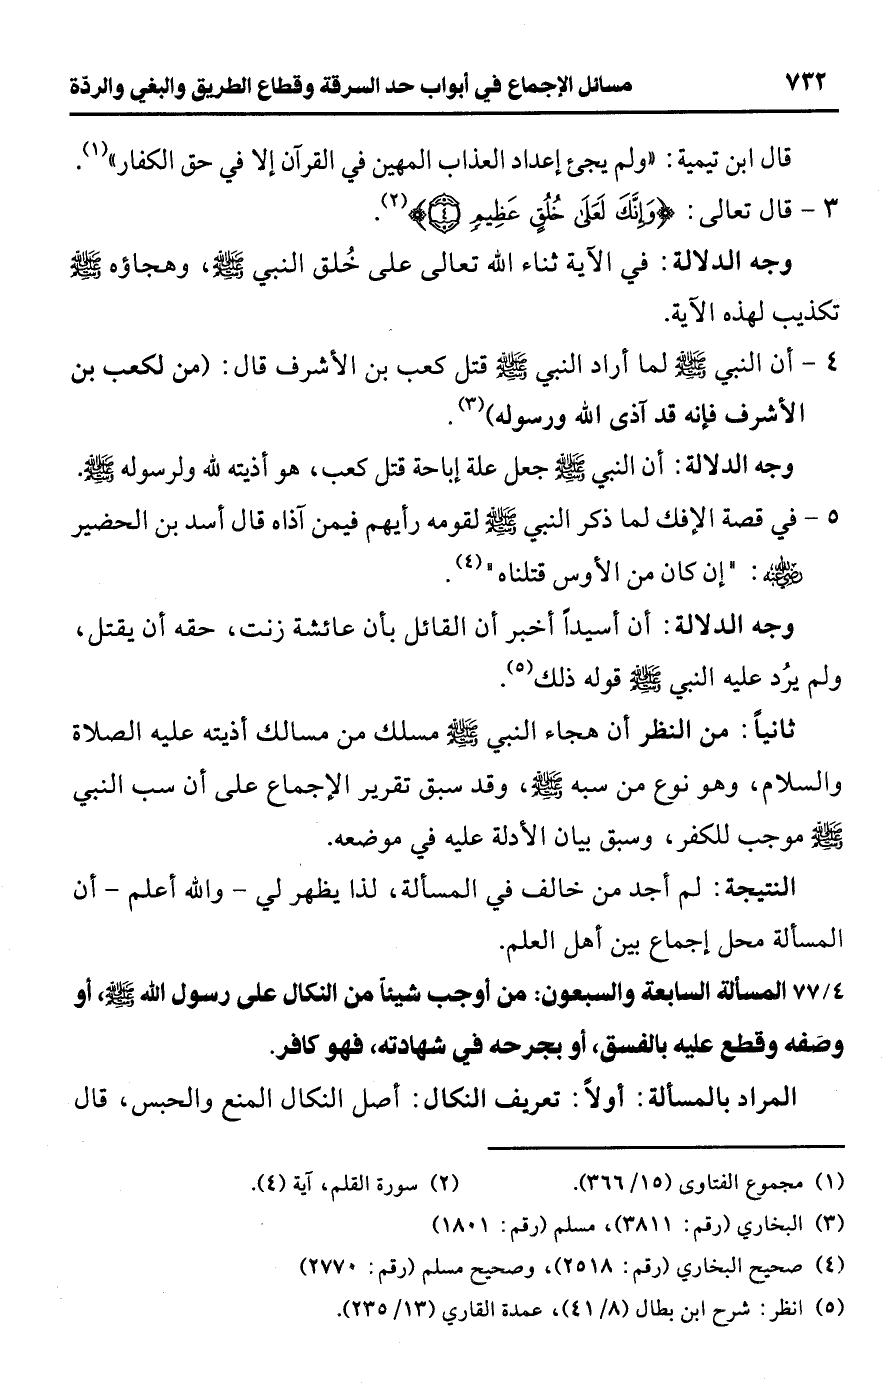 ٧٣٢ مسائل الإجماع في أبواب حد السرقة وقطاع الطريق والبغي والردّة
قال ابن تيمية: «ولم يجئ إعداد العذاب المهين في القرآن إلا في حق الكفار»(١).
٣ - قال تعالى: ﴿وَإِنَّكَ لَعَلَىٰ خُلُقٍ عَظِيمٍ ٤﴾(٢).
وجه الدلالة: في الآية ثناء الله تعالى على خُلق النبي ﷺ، وهجاؤه ﷺ
تكذيب لهذه الآية.
٤ - أن النبي ﷺ لما أراد النبي ﷺ قتل كعب بن الأشرف قال: (من لكعب بن
الأشرف فإنه قد آذى الله ورسوله)(٣).
وجه الدلالة: أن النبي ﷺ جعل علة إباحة قتل كعب، هو أذيته لله ولرسوله ﷺ.
٥ - في قصة الإفك لما ذكر النبي ﷺ لقومه رأيهم فيمن آذاه قال أسد بن الحضير
رضي الله عنه: "إن كان من الأوس قتلناه"(٤).
وجه الدلالة: أن أسيداً أخبر أن القائل بأن عائشة زنت، حقه أن يقتل،
ولم يرُد عليه النبي ﷺ قوله ذلك(٥).
ثانياً: من النظر أن هجاء النبي ﷺ مسلك من مسالك أذيته عليه الصلاة
والسلام، وهو نوع من سبه ﷺ، وقد سبق تقرير الإجماع على أن سب النبي
ﷺ موجب للكفر، وسبق بيان الأدلة عليه في موضعه.
النتيجة: لم أجد من خالف في المسألة، لذا يظهر لي - والله أعلم - أن
المسألة محل إجماع بين أهل العلم.
٧٧/٤ المسألة السابعة والسبعون: من أوجب شيئاً من النكال على رسول الله ﷺ، أو
وصَفه وقطع عليه بالفسق، أو بجرحه في شهادته، فهو كافر.
المراد بالمسألة: أولاً: تعريف النكال: أصل النكال المنع والحبس، قال
(١) مجموع الفتاوى (١٥/ ٣٦٦). (٢) سورة القلم، آية (٤).
(٣) البخاري (رقم: ٣٨١١)، مسلم (رقم: ١٨٠١)
(٤) صحيح البخاري (رقم: ٢٥١٨)، وصحيح مسلم (رقم: ٢٧٧٠)
(٥) انظر: شرح ابن بطال (٨/ ٤١)، عمدة القاري (١٣/ ٢٣٥).